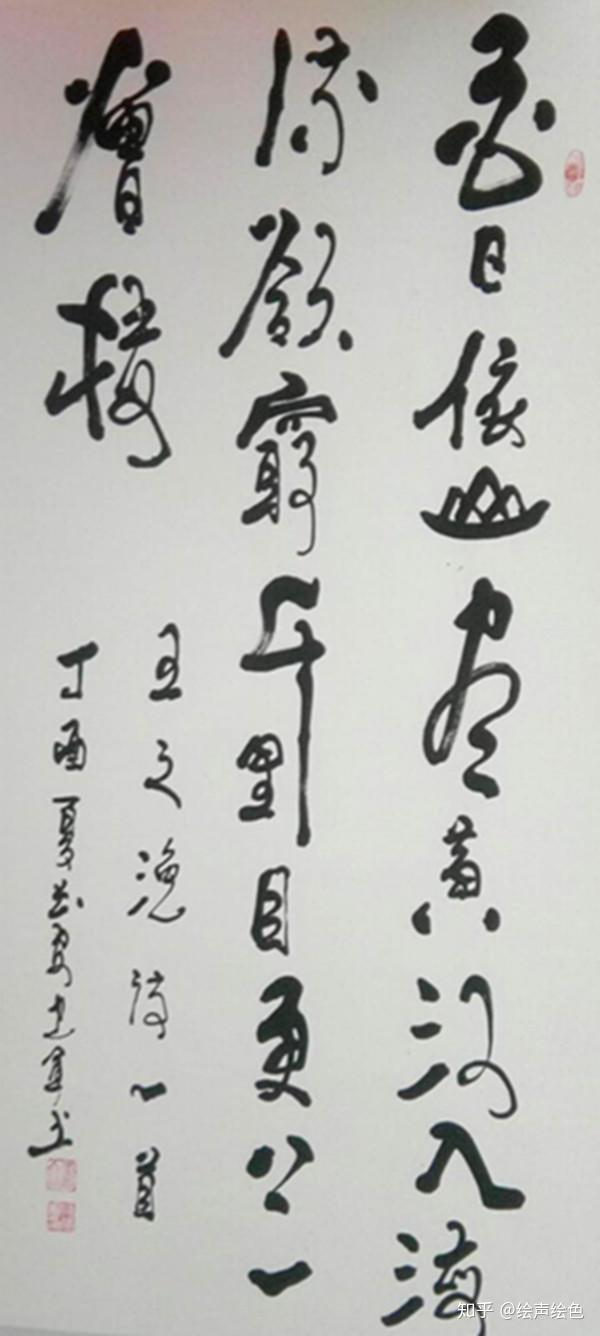 白日依山尽黄河入海
流欲窮千里目更上一
層樓
王之涣诗一首
丁酉夏
知乎 @绘声绘色